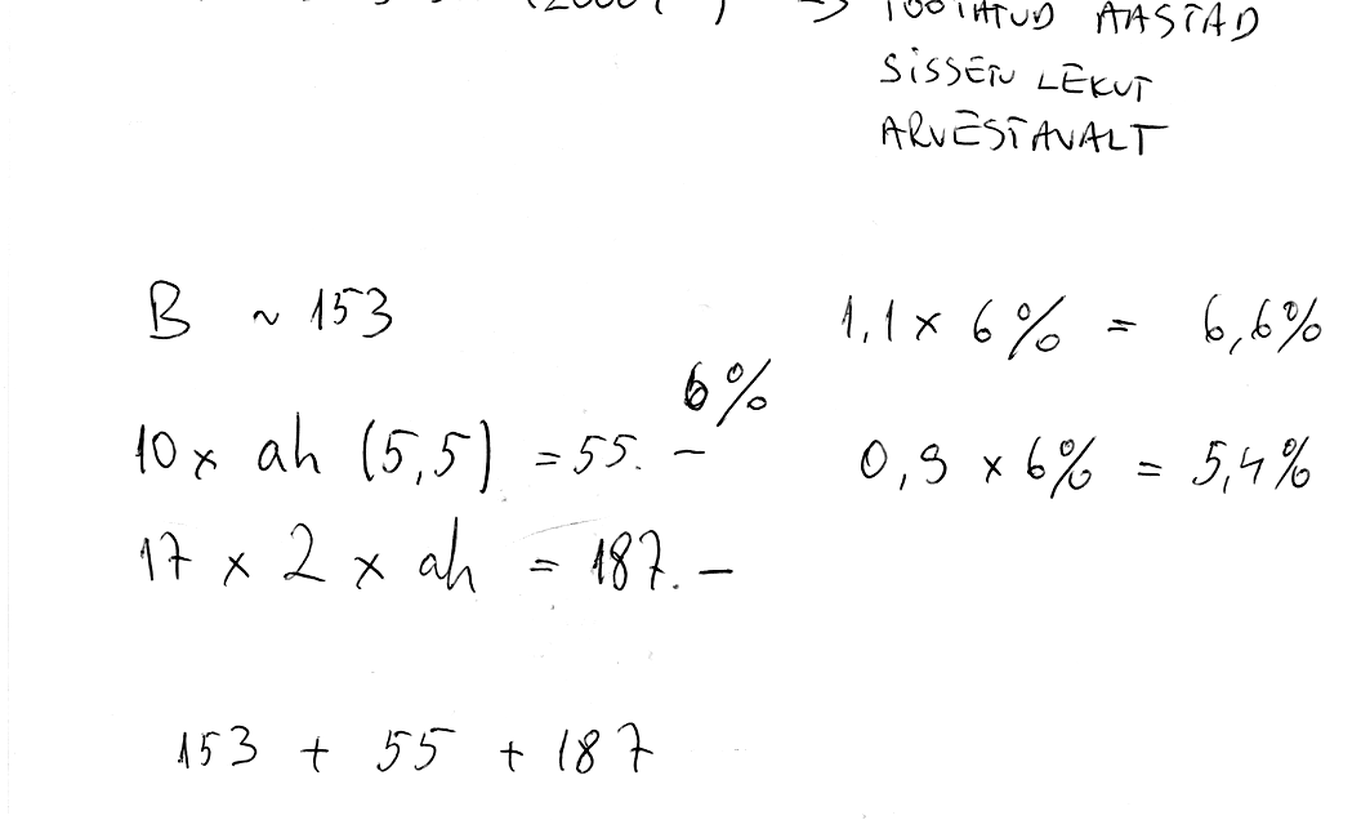 (2000 ) => TÖÖTATUD AASTAD
SISSETULEKUT
ARVESTAVALT
B ~ 153
1,1 x 6% = 6,6%
6%
10 x ah (5,5) = 55. –
0,9 x 6% = 5,4%
17 x 2 x ah = 187. –
153 + 55 + 187